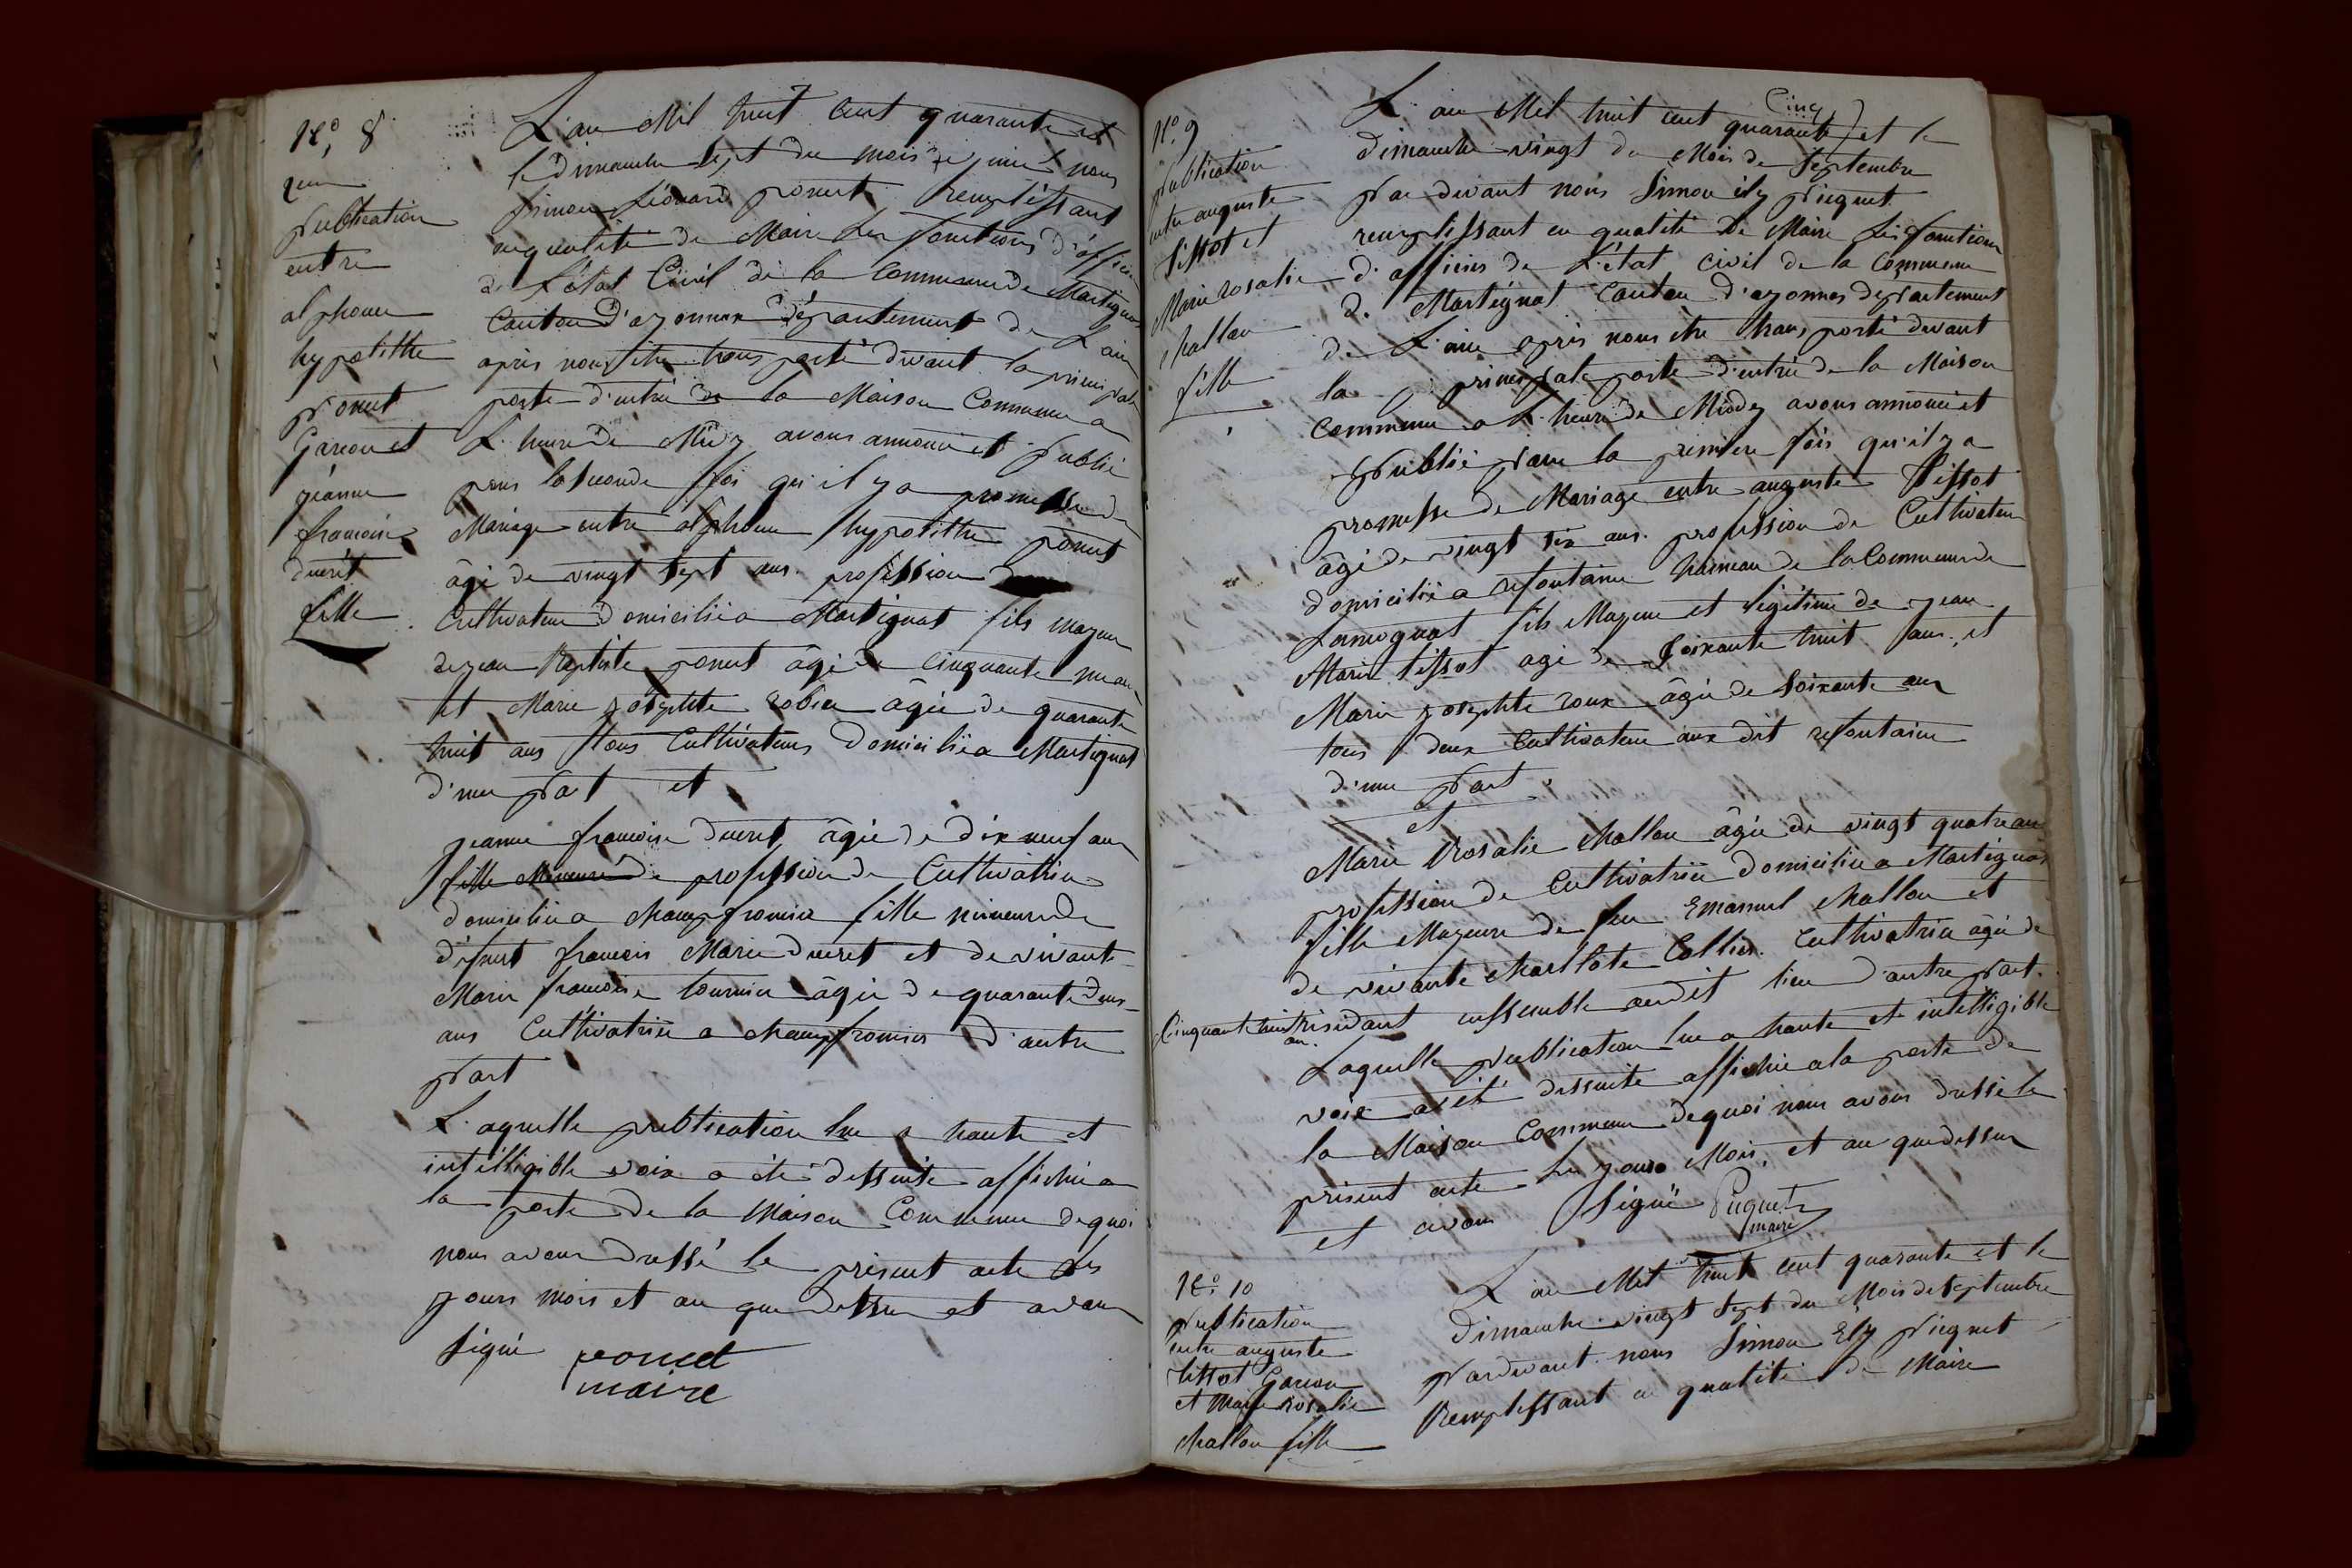 N.° 8
2eme
publication
entre
alphonse
hypolithe
ponut
Garcon et
jeanne
francoise
ducret
fille
L'an Mil huit cent quarante et
le dimanche sept du mois de juin nous
simon Léonard ponut remplissant
en qualité de Maire les fonctions d'officier
de L'état Civil de la Commune de Martignat
Canton d'ayonnax département de L'ain
après nous être trans porté devant la principale
porte d'entré de la Maison Commune a
L'heure de Midy avons annoncé et publié
pour la seconde fois qu'il y a promesse de
Mariage entre alphonse hypolithe ponut
âgé de vingt sept ans profession de
Cultivateur domicilié a Martignat fils majeur
de jean Baptiste ponut âgé de Cinquante
et Marie josephte robin âgée de quarante
huit ans tous Cultivateurs domicilié a Martignat
d'une part et
jeanne francoise ducret âgée de dix neuf ans
fille Mineure de profession de Cultivatrice
domiciliée a champfromier fille mineure de
défunt francois Marie ducret et de vivante
Marie francoise tournier âgée de quarante deux
ans Cultivatrice a champfromier d'autre
part
L'aquelle publication lue a haute et
intelligible voix a été dessuite affichée a
la porte de la Maison Commune de quoi
nous avons dressé le présent acte les
jours mois et an que dessus et avons
signé ponut
maire
N.° 9
publication
entre auguste
tissot et
Marie rosalie
challon
fille
L'an Mil huit cent quarante Cinq et le
dimanche vingt du Mois de Septembre
Par devant nous Simon ély Picquet
remplissant en qualité de Maire les fonctions
d'officier de L'état civil de la Commune
de Martignat Canton d'ayonnax département
de L'ain après nous être trans porté devant
la principale porte d'entrée de la Maison
Commune a L'heure de Midy avons annoncé et
Publié pour la première fois qu'il y a
promesse de Mariage entre auguste Tissot
âgé de vingt six ans profession de Cultivateur
domicilié a refontaine hameau de la Commune de
Lamognat fils Majeur et légitime de jean
Marie tissot agé de soixante huit ans et
Marie josephte roux âgée de soixante ans
tous deux Cultivateur aux dit refontaine
d'une Part
et
Marie Rosalie challon âgée de vingt quatre ans
profession de Cultivatrice domiciliée a Martignat
fille Majeure de feu Emanuel challon et
de vivante charllote Collier Cultivatrice âgée de
Cinquante huit ans résidant enssemble audit lieu d'autre Part.
Laquelle publication lue a haute et intelligible
voix a été dessuite affichée a la porte de
la Maison Commune de quoi nous avons dressé le
présent acte les jours Mois, et an que dessus
et avons Signé Picquet
maire
N.° 10
publication
entre auguste
tissot Garcon
et Marie rosalie
challon fille
L'an Mil huit cent quarante et le
dimanche vingt sept du Mois de Septembre
Pardevant nous Simon Ely Picquet
Remplissant en qualité de Maire